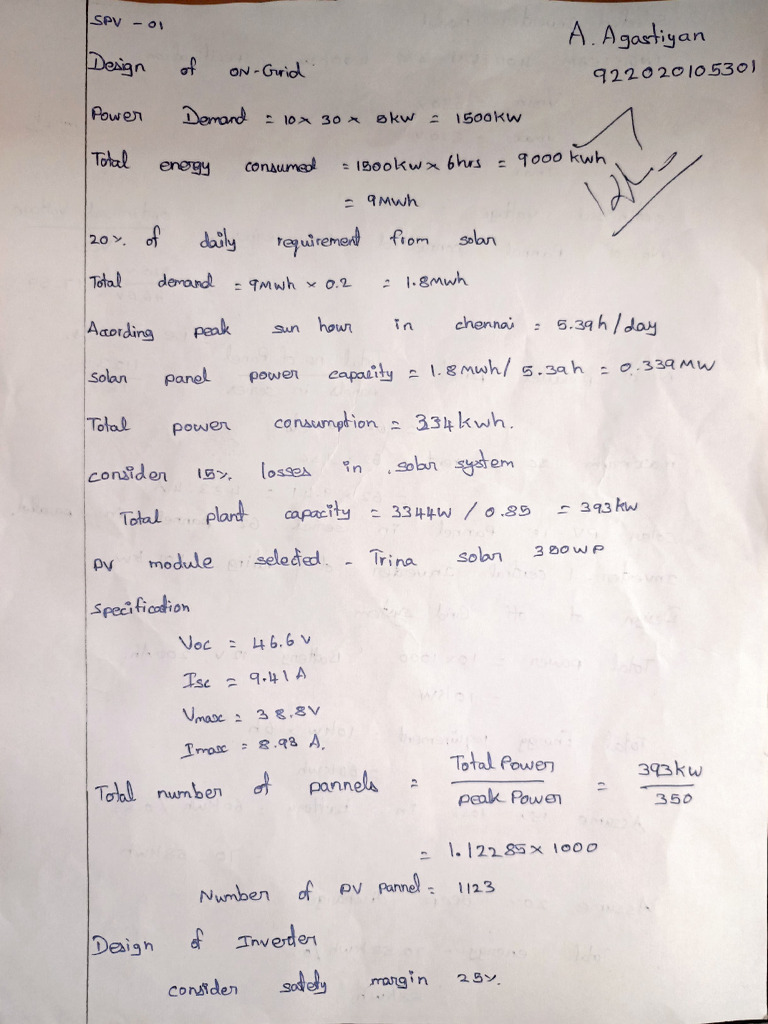 SPV - 01
A. Agastiyan
922020105301
Design of ON-Grid
Power Demand = 10 x 30 x 5kw = 1500kw
Total energy consumed = 1500kw x 6hrs = 9000 kwh
= 9Mwh
20% of daily requirement from solar
Total demand = 9Mwh x 0.2 = 1.8mwh
Acording peak sun hour in chennai = 5.39h/day
solar panel power capacity = 1.8Mwh/ 5.39h = 0.339MW
Total power consumption = 334kwh.
consider 15% losses in solar system
Total plant capacity = 334kw / 0.85 = 393kw
PV module selected. - Trina solar 350WP
specification
Voc = 46.6 V
Isc = 9.41 A
Vmax = 38.8V
Imax = 8.98 A.
Total number of pannels = Total Power / peak Power = 393kw / 350
= 1.12285 x 1000
Number of PV pannel = 1123
Design of Inverder
consider safety margin 25%.